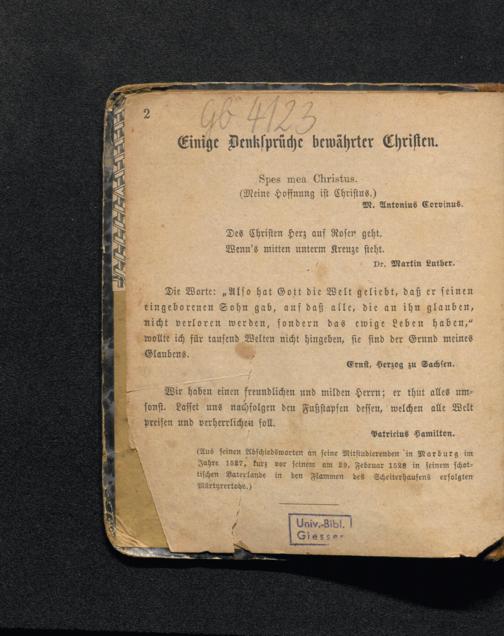 2
Gb 4123
Einige Denksprüche bewährter Christen.
Spes mea Christus.
(Meine Hoffnung ist Christus.)
M. Antonius Corvinus.
Des Christen Herz auf Rosen geht,
Wenn's mitten unterm Kreuze steht.
Dr. Martin Luther.
Die Worte: „Also hat Gott die Welt geliebt, daß er seinen
eingeborenen Sohn gab, auf daß alle, die an ihn glauben,
nicht verloren werden, sondern das ewige Leben haben,“
wollte ich für tausend Welten nicht hingeben, sie sind der Grund meines
Glaubens.
Ernst, Herzog zu Sachsen.
Wir haben einen freundlichen und milden Herrn; er thut alles um-
sonst. Lasset uns nachfolgen den Fußstapfen dessen, welchen alle Welt
preisen und verherrlichen soll.
Patricius Hamilton.
(Aus seinen Abschiedsworten an seine Mitstudierenden in Marburg im
Jahre 1527, kurz vor seinem am 29. Februar 1528 in seinem schot-
tischen Vaterlande in den Flammen des Scheiterhaufens erfolgten
Märtyrertode.)
Univ.-Bibl.
Giessen